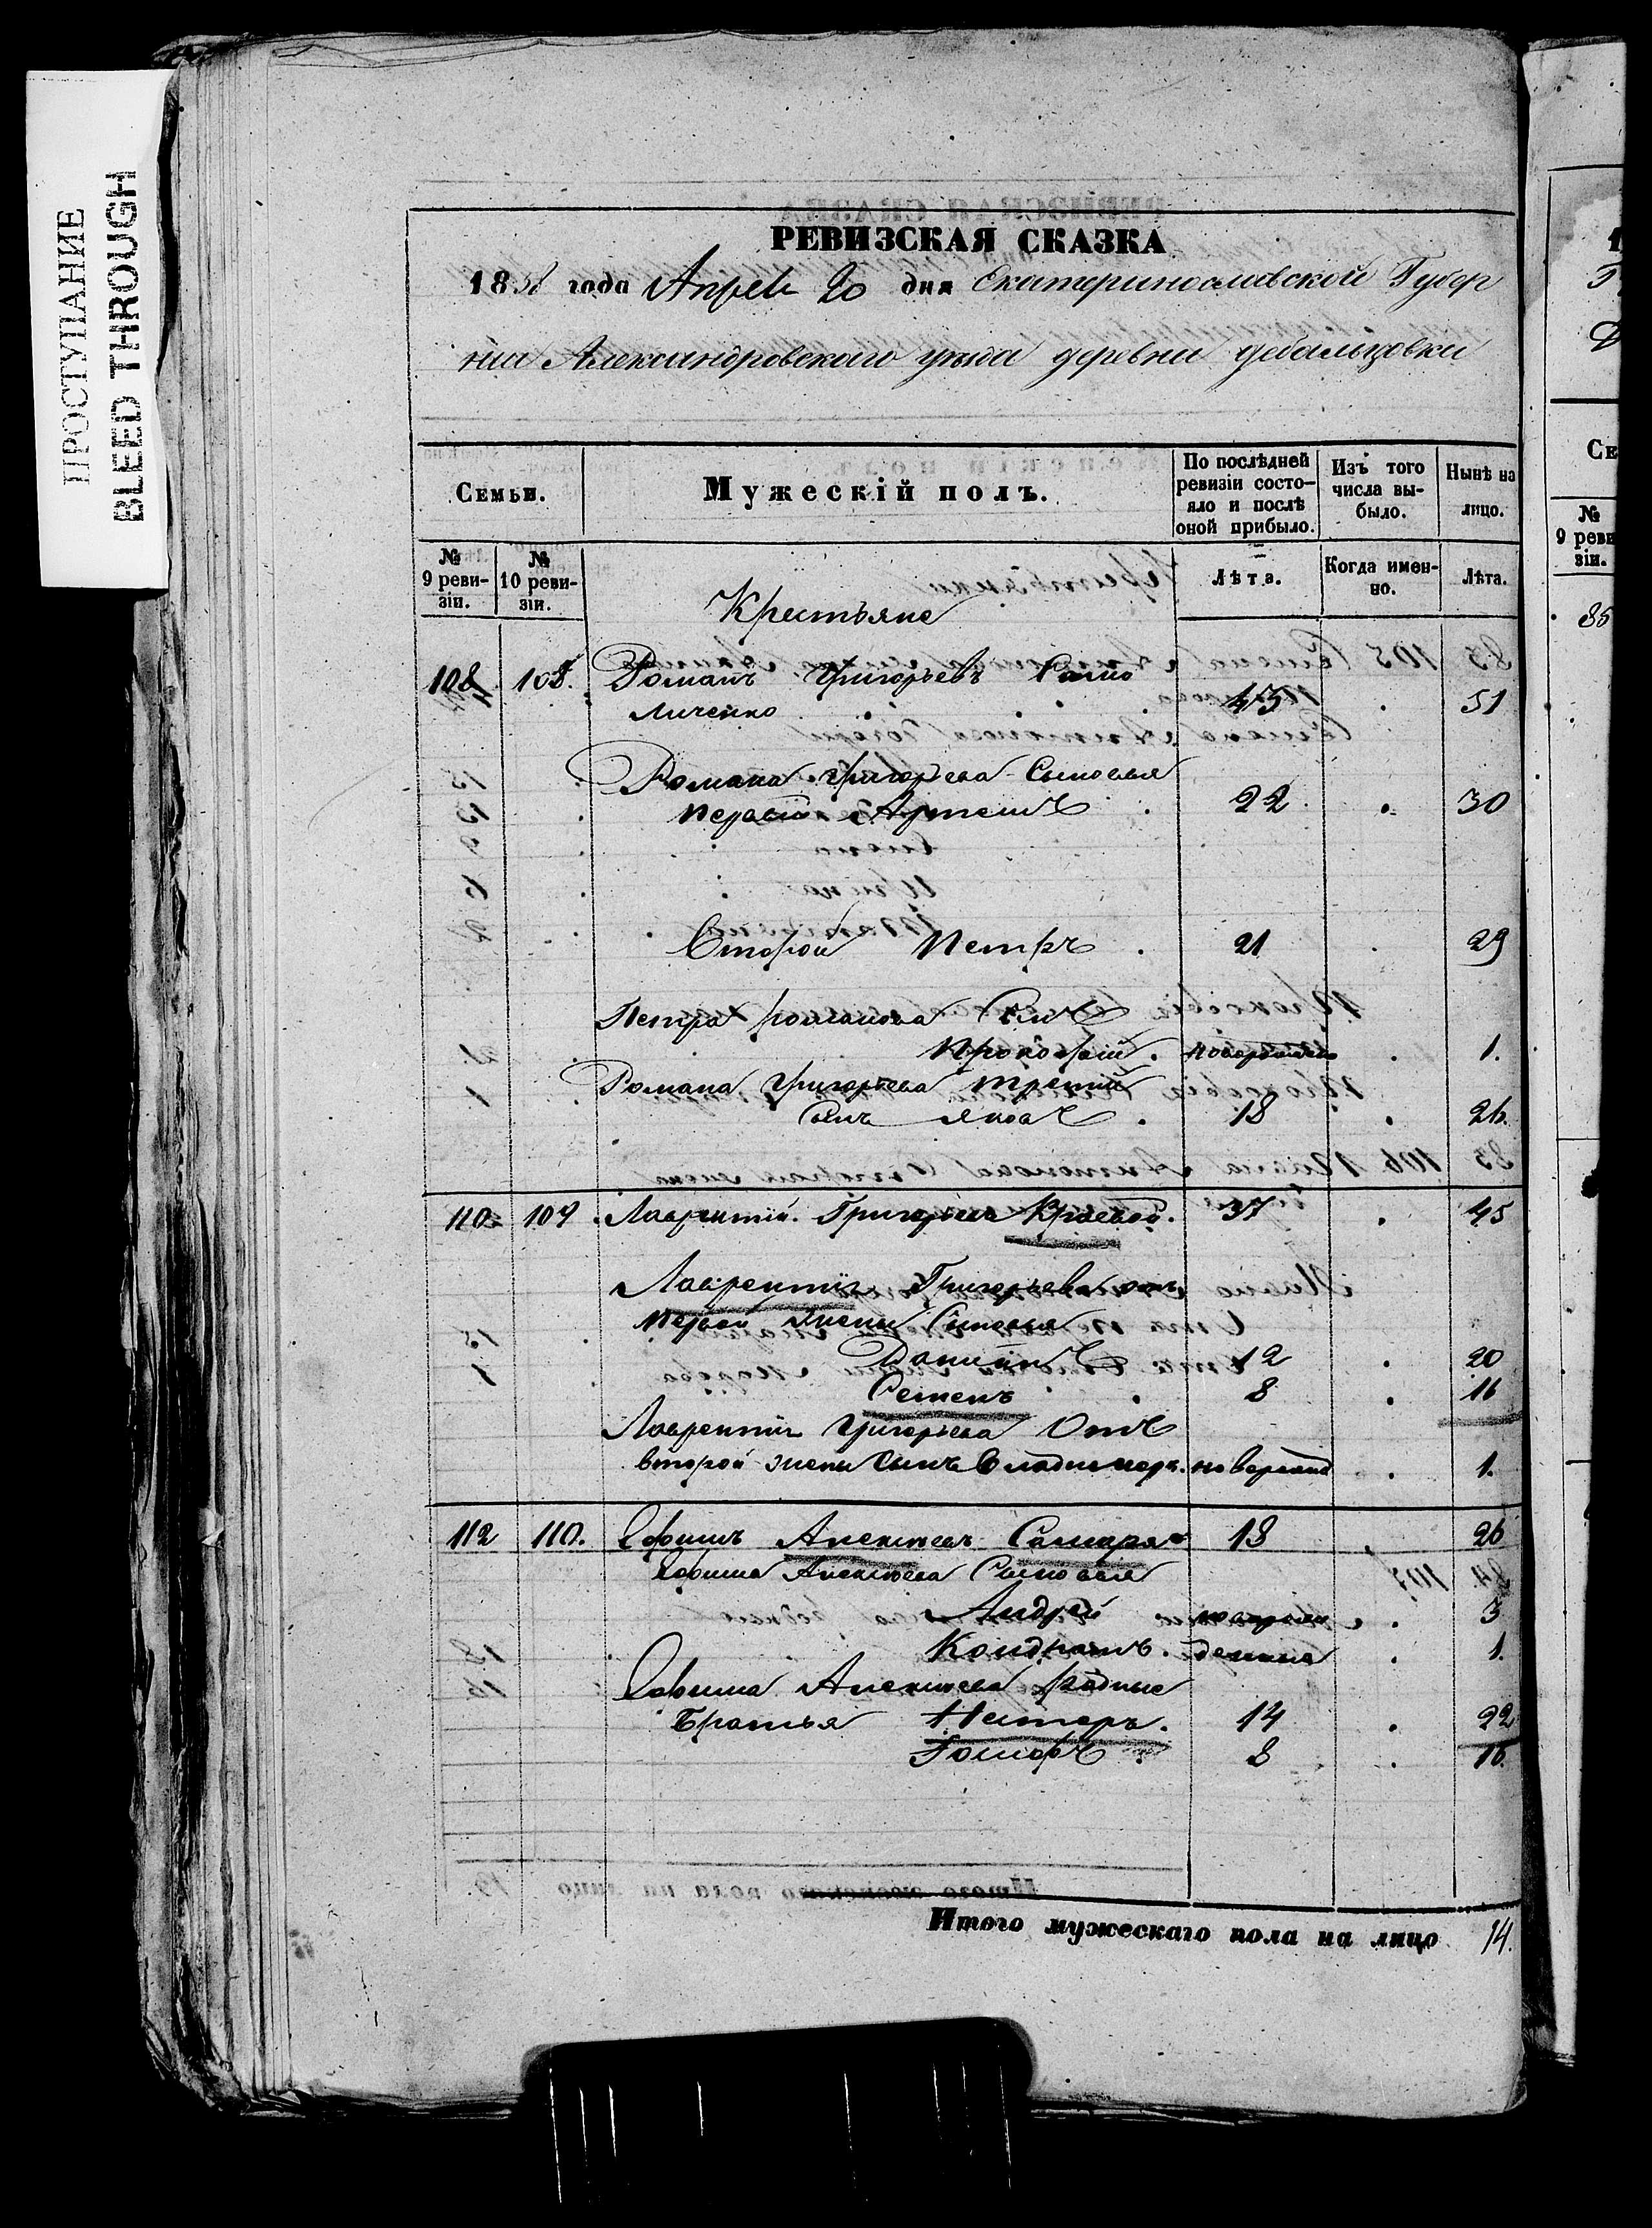 ПРОСТУПАНИЕ
BLEED THROUGH
РЕВИЗСКАЯ СКАЗКА
1858 года Апреля 20 дня Екатеринославской Губер
нии Александровского уезда деревни Дебальцовки
Семьи.
Мужескій полъ.
По послѣдней ревизіи состо-яло и послѣ оной прибыло.
Изъ того числа вы-было.
Нынѣ на лицо.
№ 9 реви-зіи.
№ 10 реви-зіи.
Лѣта.
Когда имен-но.
Лѣта.
Крестьяне
108 108. Романъ Григорьевъ
личенко 43 51
Романа Григорьева Сыновья
первый Артемъ 22 30
Второй Петръ 21 29
Петра Романова Сынъ
Прокофий. новорожден 1.
Романа Григорьева третий
сынъ Яковъ 18 26.
110 109 Лаврентий Григорьевъ Краевой. 37 45
Лаврентия Григорьева отъ
первой жены Сыновья
Даниилъ 12 20
Семенъ 8 16
Лаврентия Григорьева Отъ
второй жены сынъ Владимиръ. новорожд 1.
112 110. Ефимъ Алексеевъ 18 26
Ефима Алексеева Сыновья
Андрей новорож 3
Кондратъ. денные 1.
Ефима Алексеева родные
Братья Нестеръ. 14 22
8 16.
Итого мужескаго пола на лицо 14.
Се
№ 9 реви зіи.
85